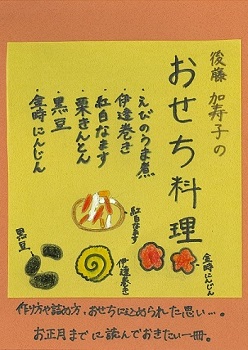 後藤 加寿子の
おせち料理
・えびのうま煮
・伊達巻き
・紅白なます
・栗きんとん
・黒豆
・金時にんじん
金時にんじん
紅白なます
伊達巻き
黒豆
作り方や詰め方、おせちにこめられた思い…。
お正月までに読んでおきたい一冊。